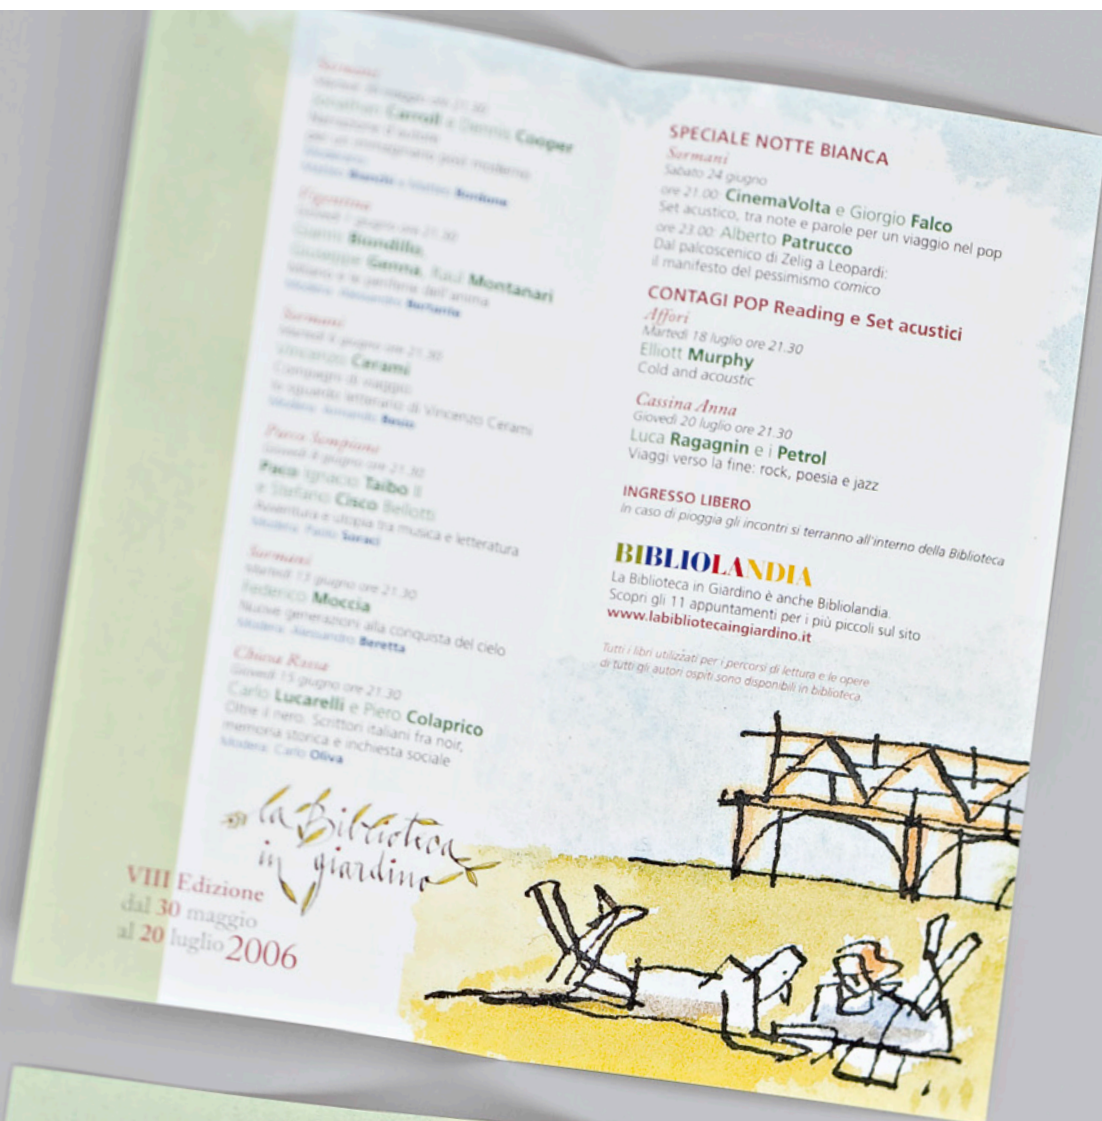 Sormani
Martedì 30 maggio ore 21.30
Jonathan Carroll e Dennis Cooper
Narrazione d'autore
per un immaginario post moderno
Moderano:
Bianchi e Matteo Bordone
Tigentina
Giovedì 1 giugno ore 21.30
Gianni Biondillo,
Giuseppe Genna, Raul Montanari
Milano e le periferie dell'anima
Modera: Alessandro Bertante
Sormani
Martedì 6 giugno ore 21.30
Vincenzo Cerami
Compagni di viaggio:
lo sguardo letterario di Vincenzo Cerami
Modera: Armando Besio
Parco Sempione
Giovedì 8 giugno ore 21.30
Paco Ignacio Taibo II
e Stefano Cisco Bellotti
Avventura e utopia tra musica e letteratura
Modera: Paolo Soraci
Sormani
Martedì 13 giugno ore 21.30
Federico Moccia
Nuove generazioni alla conquista del cielo
Modera: Alessandro Beretta
Chiesa Rossa
Giovedì 15 giugno ore 21.30
Carlo Lucarelli e Piero Colaprico
Oltre il nero. Scrittori italiani fra noir,
memoria storica e inchiesta sociale
Modera: Carlo Oliva
la Biblioteca
in giardino
VIII Edizione
dal 30 maggio
al 20 luglio 2006
SPECIALE NOTTE BIANCA
Sormani
Sabato 24 giugno
ore 21.00: CinemaVolta e Giorgio Falco
Set acustico, tra note e parole per un viaggio nel pop
ore 23.00: Alberto Patrucco
Dal palcoscenico di Zelig a Leopardi:
il manifesto del pessimismo comico
CONTAGI POP Reading e Set acustici
Affori
Martedì 18 luglio ore 21.30
Elliott Murphy
Cold and acoustic
Cassina Anna
Giovedì 20 luglio ore 21.30
Luca Ragagnin e i Petrol
Viaggi verso la fine: rock, poesia e jazz
INGRESSO LIBERO
In caso di pioggia gli incontri si terranno all'interno della Biblioteca
BIBLIOLANDIA
La Biblioteca in Giardino è anche Bibliolandia.
Scopri gli 11 appuntamenti per i più piccoli sul sito
www.labibliotecaingiardino.it
Tutti i libri utilizzati per i percorsi di lettura e le opere
di tutti gli autori ospiti sono disponibili in biblioteca.